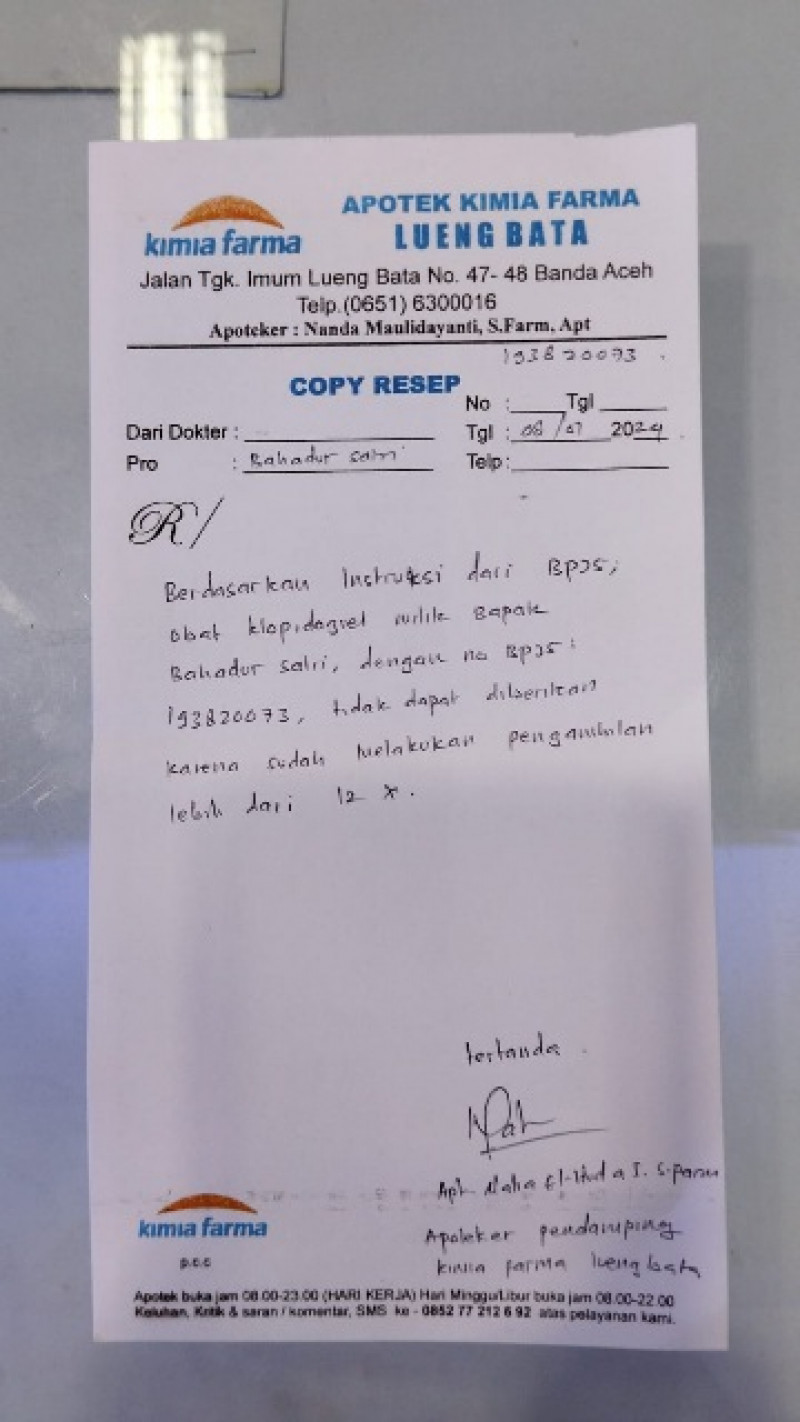 kimia farma
APOTEK KIMIA FARMA
LUENG BATA
Jalan Tgk. Imum Lueng Bata No. 47- 48 Banda Aceh
Telp.(0651) 6300016
Apoteker : Nanda Maulidayanti, S.Farm, Apt
193820073
COPY RESEP
No : Tgl
Dari Dokter :
Tgl : 08/07 2024
Pro : Bahadur satri
Telp:
R/
Berdasarkan Instruksi dari BPJS,
obat klopidogrel milik Bapak
Bahadur satri, dengan no BPJS :
193820073, tidak dapat diberikan
karena sudah melakukan pengambilan
lebih dari 12 x.
tertanda
Apt. El-Huda
Apoteker pendamping
kimia farma lueng bata
kimia farma
p.c.c
Apotek buka jam 08.00-23.00 (HARI KERJA) Hari Minggu/Libur buka jam 08.00-22.00
Keluhan, Kritik & saran / komentar, SMS ke - 0852 77 212 6 92 atas pelayanan kami.